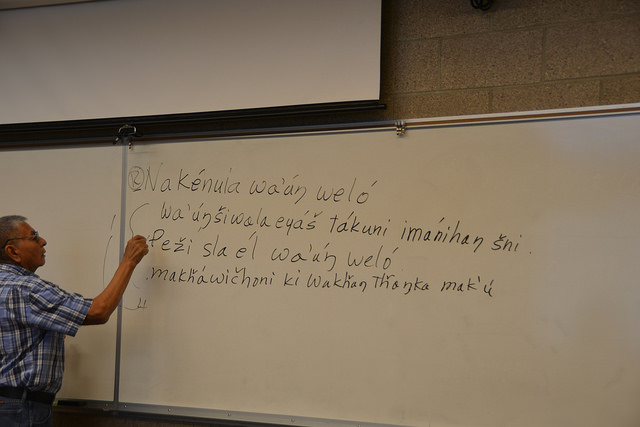 ② Nakénula wa'úŋ weló
wa'úŋšiwala eyáš tákuni imáŋihaŋ šni.
Peži sla él wa'úŋ weló
makȟáwičhoni ki wakȟáŋ Tȟáŋka mak'ú